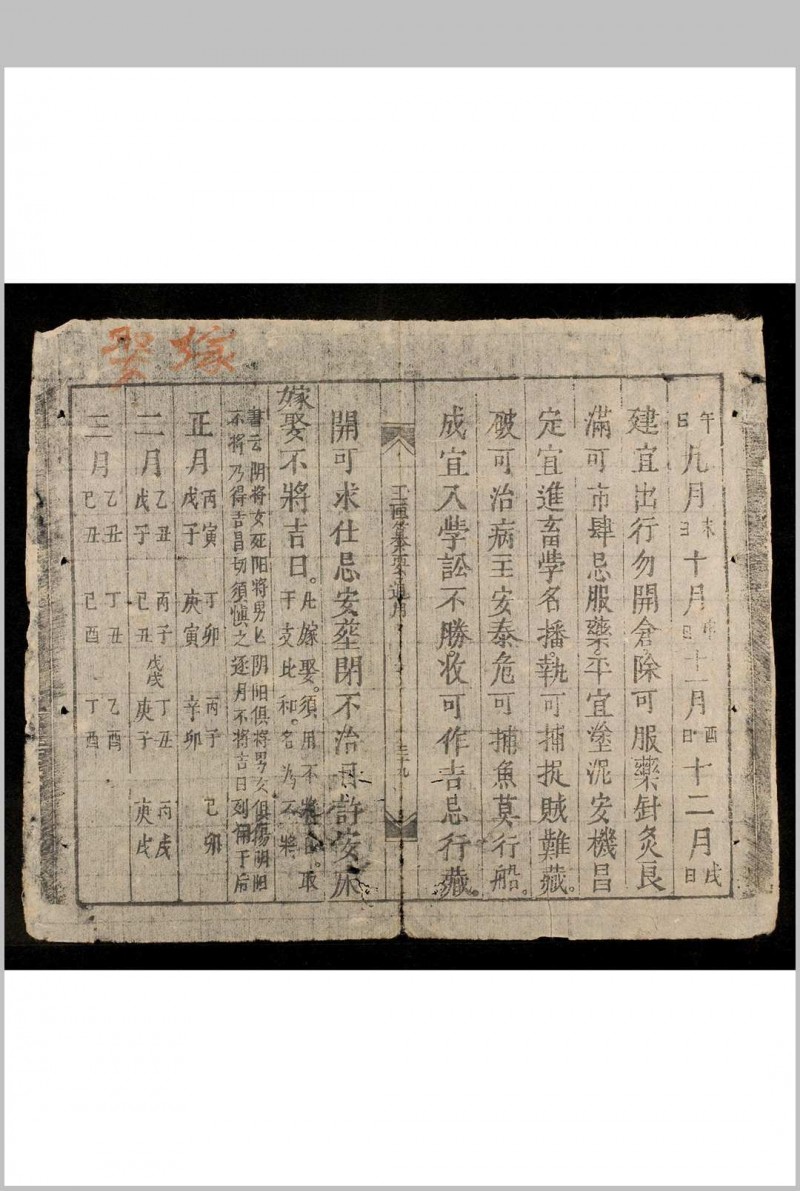 嫁娶
午日九月未日十月申日十一月酉日十二月戌日
建宜出行勿開倉除可服藥針灸良
滿可市肆忌服藥平宜塗泥安機昌
定宜進畜學名播執可捕捉賊難藏
破可治病主安泰危可捕魚莫行船
成宜入學訟不勝收可作吉忌行藏
通用
三十九
開可求仕忌安葬閉不治目許安床
嫁娶不將吉日
凡嫁娶須用不將日取
干支比和名為不將
書云阴將女死阳將男亡阴阳俱將男女俱傷阴阳
不將乃得吉昌切須慎之逐月不將吉日列備于后
正月 丙寅 丁卯 丙子 己卯
戊子 庚寅 辛卯
二月 乙丑 丙子 戊戌 丁丑 丙戌
戊子 己丑 庚子 庚戌
三月 乙丑 丁丑 乙酉
己丑 己酉 丁酉